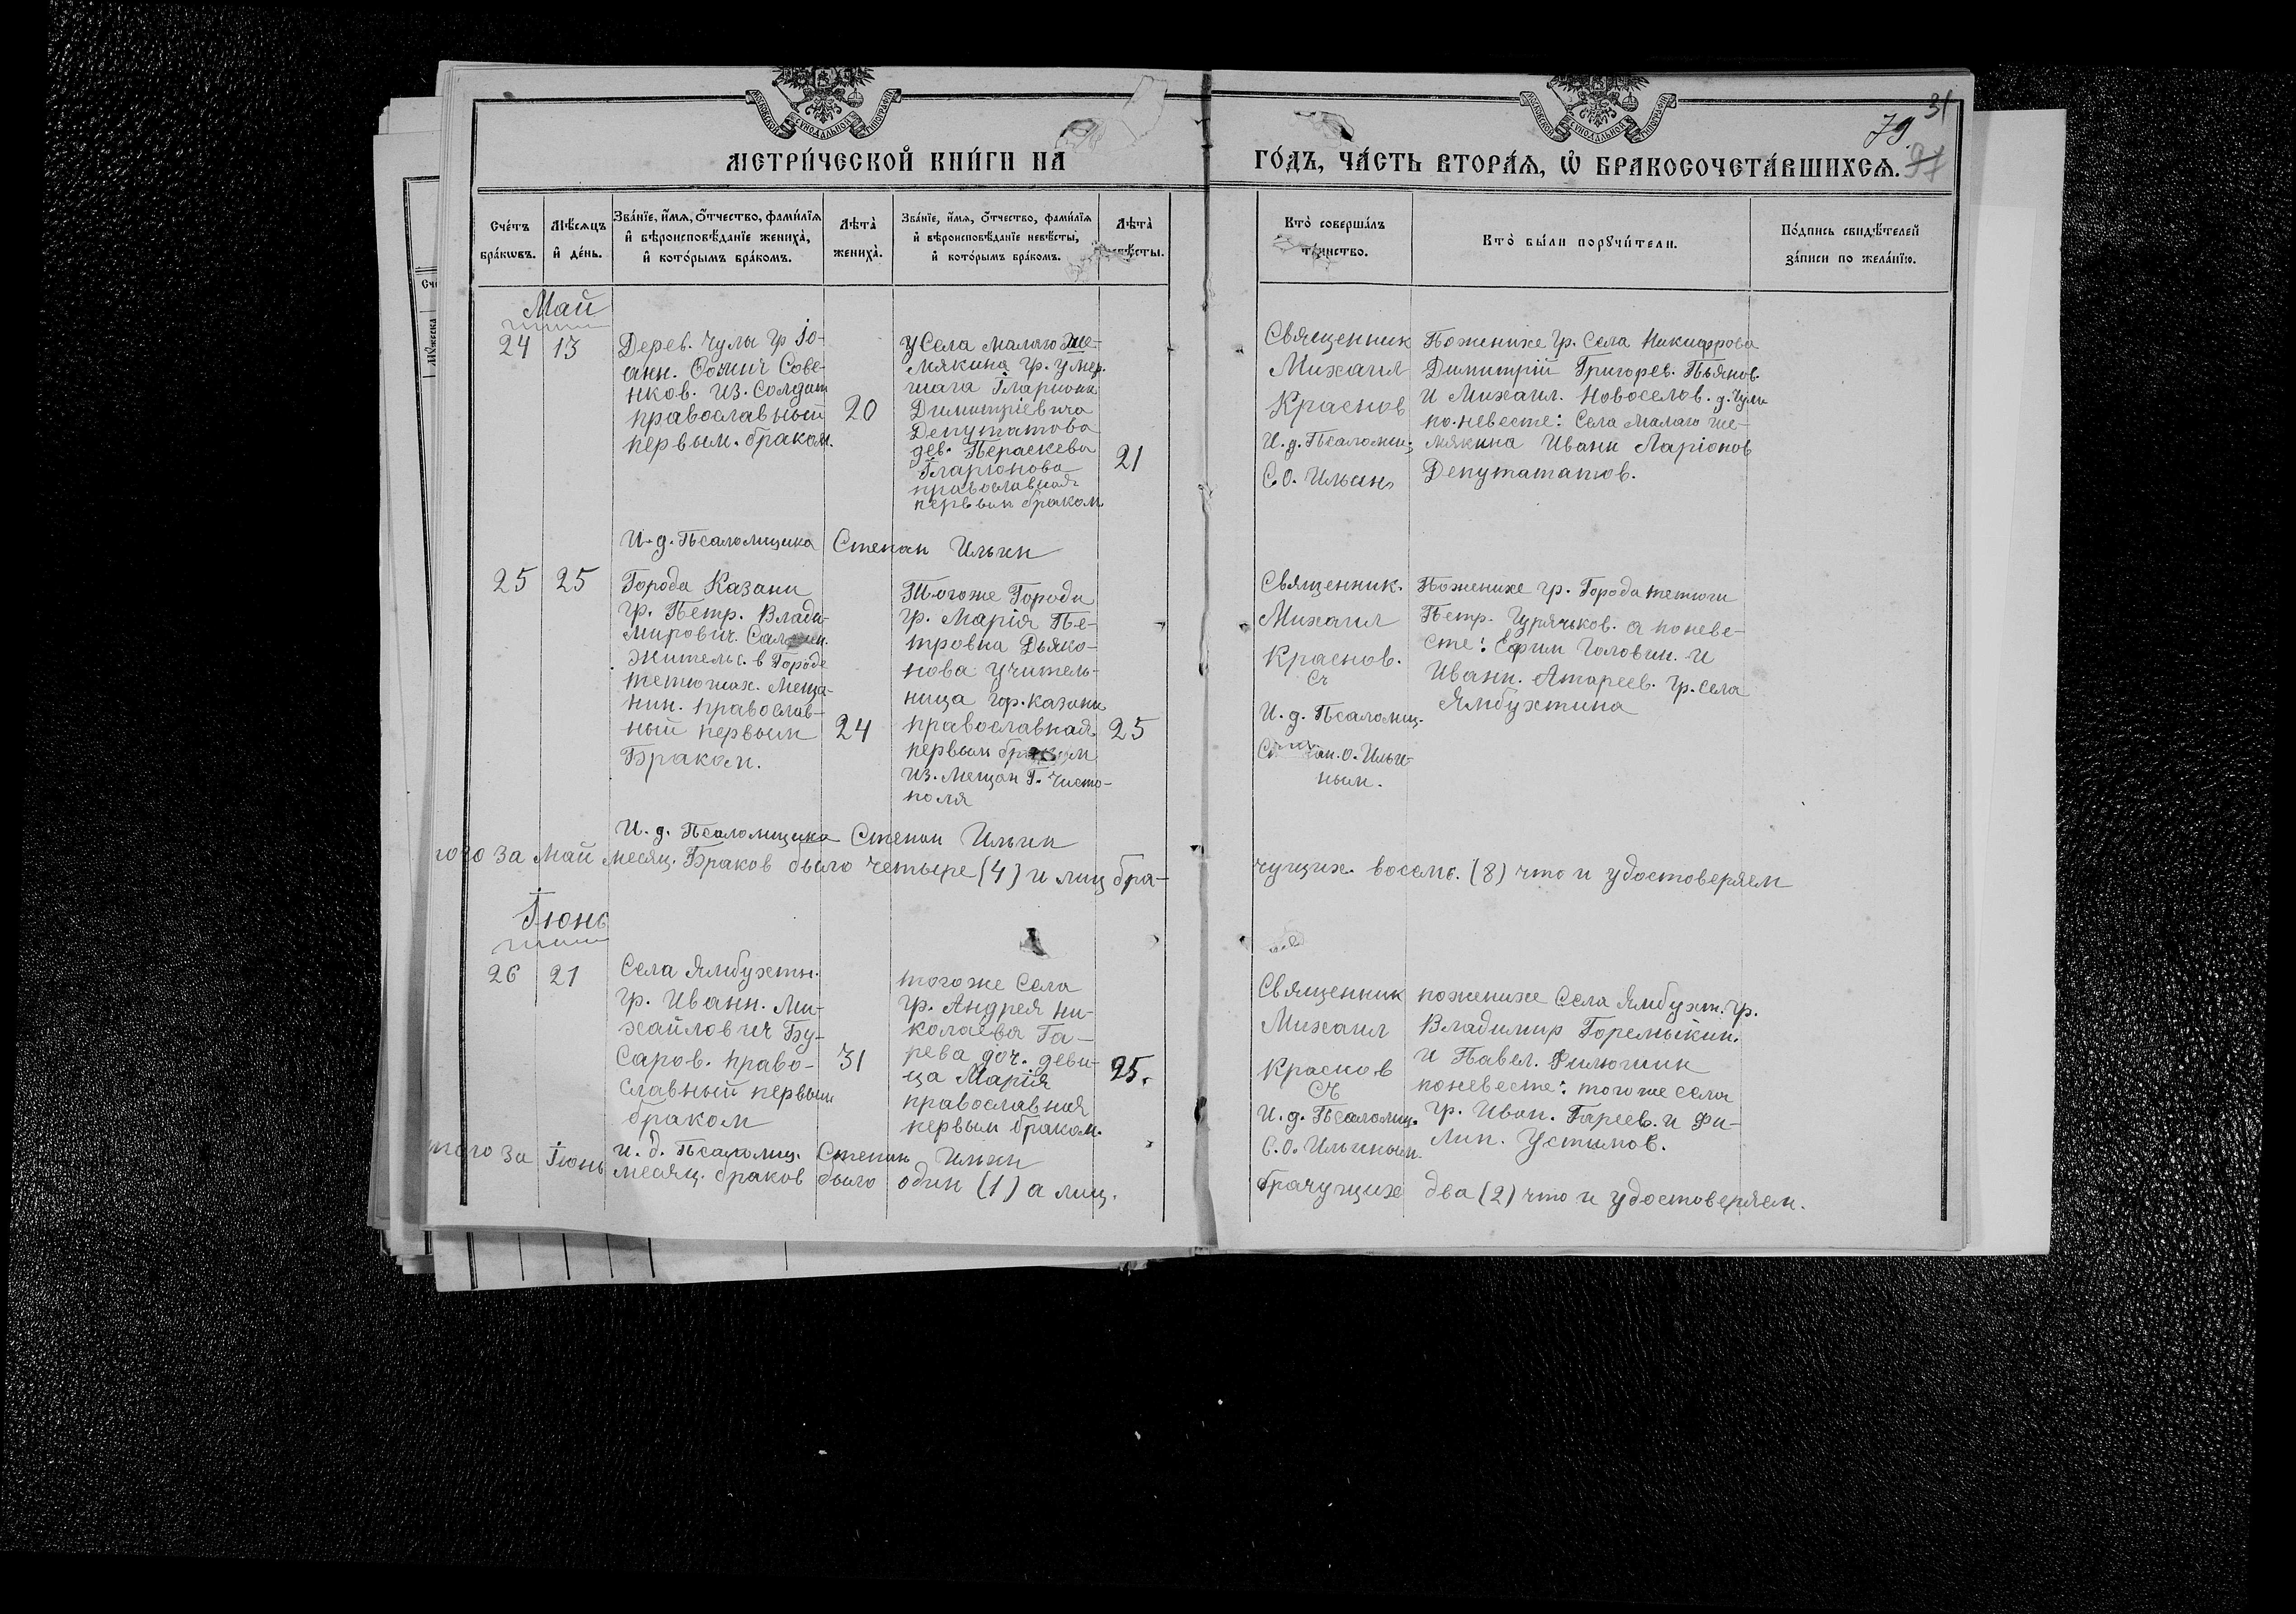 МОСКОВСКОЙ СѴНОДАЛЬНОЙ ТИПОГРАФІИ
МОСКОВСКОЙ СѴНОДАЛЬНОЙ ТИПОГРАФІИ
31
79.
МЕТРИ́ЧЕСКОЙ КНИ́ГИ НА
ГО́ДЪ, ЧА́СТЬ ВТОРА́Я, Ѡ БРАКОСОЧЕТА́ВШИХСЯ.
Сче́тъ бра́кѡвъ.
Мѣ́сяцъ и де́нь.
Зва́нїе, и́мя, ѻ́тчество, фами́лїя и вѣроисповѣ́данїе жениха̀, и кото́рымъ бра́комъ.
Лѣта̀ жениха̀.
Зва́нїе, и́мя, ѻ́тчество, фами́лїя и вѣроисповѣ́данїе невѣ́сты, и кото́рымъ бра́комъ.
Лѣта̀
Кто̀ соверша́лъ та́инство.
Кто̀ бы́ли порꙋчи́тели.
По́дпись свидѣ́телей за́писи по жела́нїю.
Май
24
13
Дерев. Чулы гр Іо-
анн.
Сове-
нков. из. Солдат
православный
первым. браком.
20
Села Малаго Ше-
мякина гр. умер.
шаго Іларіона
Димитріевича
Депутатова
дев. Пераскева
Іларіонова
православная
первым браком
21
Священник
Михаил
Краснов
И. д. Псаломщ.
С. О. Ильин
Поженихе гр. Села Никифрова
Димитрій Григорев. Пьянов.
И Михаил. Новоселов. д. Чулы
по. невесте: Села Малаго Ше-
мякина Иванн Ларіонов
Депутататов.
И. д. Псаломщика Степан Ильин
25
25
Города Казани
гр. Петр. Влади-
мирович.
Жительс. в Городе
тетюшах. меща-
нин. православ-
ный первым
Браком.
24
Тогоже Города
гр. Марія Пе-
тровна Дьяко-
нова учитель-
ница гор. казани
православная
первым браком
из. мещан г. чисто-
поля
25
Священник.
Михаил
Краснов.
Сч
И. д. Псаломщ.
О. Ильи-
ным.
Поженихе гр. Города тетюши
Петр. Гурячьков. а поневе-
сте: Ефим Головин. и
Иванн. Атареев. гр. села
Ямбухтина
И. д. Псаломщика Степан Ильин
за Май месяц. Браков было четыре (4) и лиц бра-
чущих. восемь. (8) что и удостоверяем
Іюнь
26
21
Села Ямбухты.
гр. Иванн. Ми-
хайлович Бу-
саров. право-
славный первым
браком
31
тогоже Села
гр. Андрея Ни-
колаева Га-
рева доч. деви-
ца Марія
православная
первым браком.
25.
Священник
Михаил
Краснов
Сч
И. д. Псаломщ.
С. О. Ильиным.
поженихе Села Ямбухт. гр.
Владимир Горемыкин.
и Павел. Филюшин
поневесте: того же села
гр. Иван. Гареев. и Фи-
лип. Устимов.
и. д. Псаломщ. Степан Ильин
за Іюнь месяц. браков было один (1) а лиц.
брачущих два (2) что и удостоверяем.